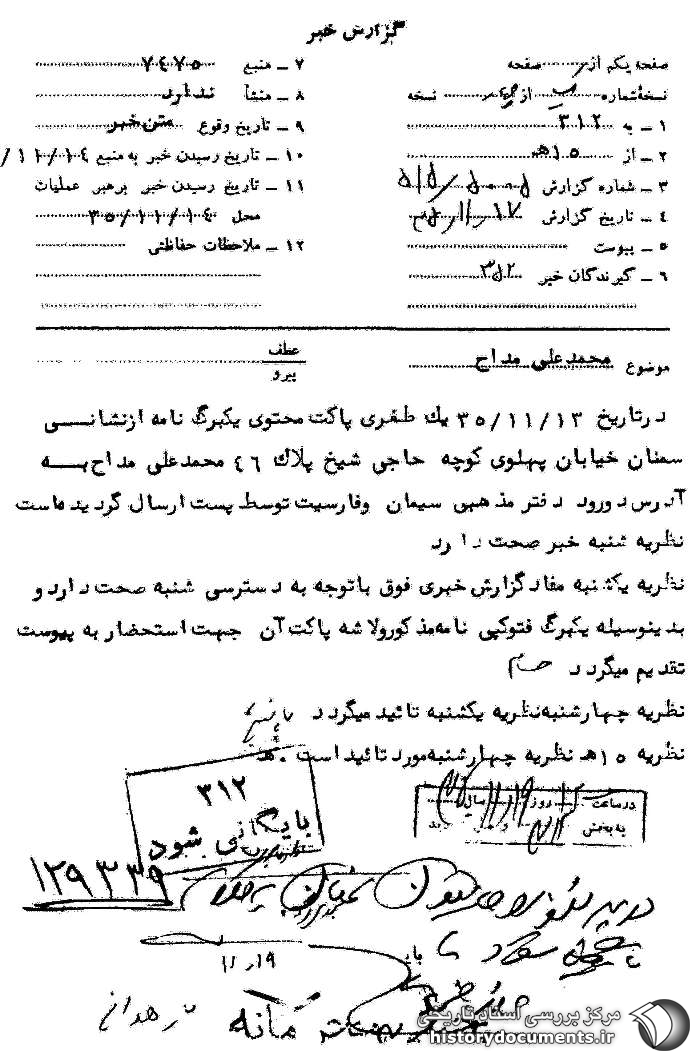 گزارش خبر
صفحه یکم از صفحه
نسخه شماره از نسخه
۱ ـ به ۳۱۲
۲ ـ از ۱۵هـ
۳ ـ شماره گزارش
۴ ـ تاریخ گزارش
۵ ـ پیوست
۶ ـ گیرندگان خبر ۳۱۲
۷ ـ منبع ۷۴۷۵
۸ ـ منشأ ندارد
۹ ـ تاریخ وقوع متن خبر
۱۰ ـ تاریخ رسیدن خبر به منبع ۱۱/۱۴/
۱۱ ـ تاریخ رسیدن خبر برهبر عملیات
محل ۳۵/۱۱/۱۴
۱۲ ـ ملاحظات حفاظتی
موضوع محمدعلی مداح
عطف
پیرو
درتاریخ ۳۵/۱۱/۱۳ یك طغری پاکت محتوی یکبرگ نامه ازنشانی
سمنان خیابان پهلوی کوچه حاجی شیخ پلاك ۴۶ محمدعلی مداح به
آدرس دورود دفتر مذهبی سیمان وفارسیت توسط پست ارسال گردیده است
نظریه شنبه خبر صحت دارد
نظریه یکشنبه مفاد گزارش خبری فوق باتوجه به دسترسی شنبه صحت دارد و
بدینوسیله یکبرگ فتوکپی نامه مذکور ولاشه پاکت آن جهت استحضار به پیوست
تقدیم میگردد
نظریه چهارشنبه نظریه یکشنبه تائید میگردد
نظریه ۱۵هـ نظریه چهارشنبه مورد تائید است . هـ
۳۱۲
بایگانی شود
در ساعت روز
به بخش
۱۲۹۳۳۹
۱۱٫۱۹
مرکز بررسی اسناد تاریخی
historydocuments.ir